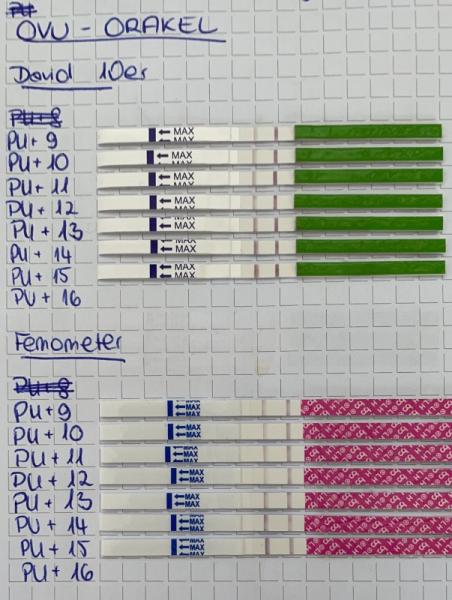 OVU - ORAKEL
David 10er
PU+8
PU+ 9
PU+ 10
PU+ 11
PU+ 12
PU+ 13
PU+ 14
PU+ 15
PU+ 16
← MAX
← MAX
← MAX
← MAX
← MAX
← MAX
← MAX
← MAX
← MAX
← MAX
← MAX
← MAX
← MAX
← MAX
Femometer
PU+8
PU+9
PU+ 10
PU+ 11
PU+ 12
PU+ 13
PU+ 14
PU+ 15
PU+ 16
←MAX
←MAX
←MAX
←MAX
←MAX
←MAX
←MAX
←MAX
←MAX
←MAX
←MAX
←MAX
←MAX
←MAX